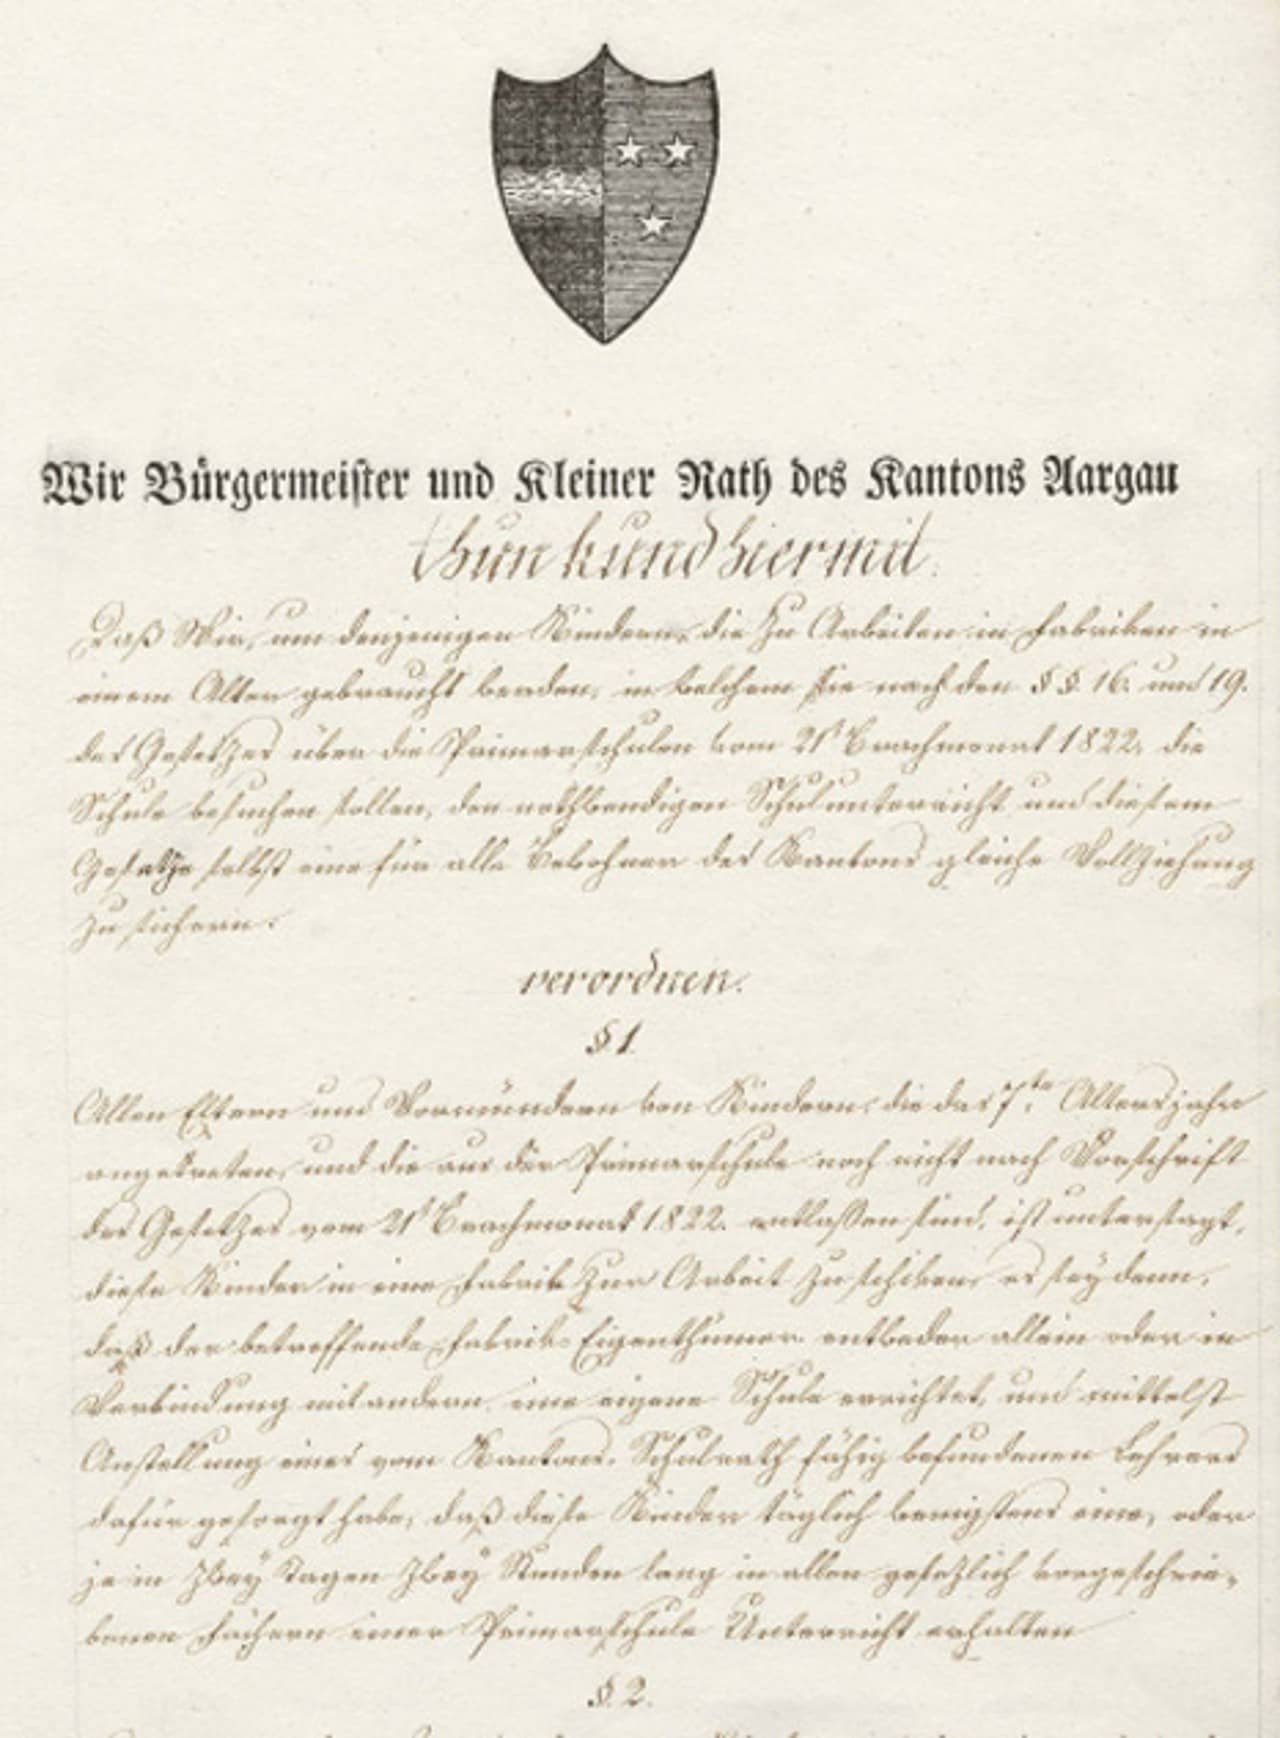 Wir Bürgermeister und Kleiner Rath des Kantons Aargau
thun kund hiermit.
Daß Wir, um denjenigen Kindern, die zu Arbeiten in Fabriken in
einem Alter gebraucht werden, in welchem sie nach den §§. 16. und 19.
des Gesetzes über die Primarschulen vom 21t Brachmonat 1822. die
Schule besuchen sollen, den nothwendigen Schulunterricht und diesem
Gesetze selbst eine für alle Bewohner des Kantons gleiche Vollziehung
zu sichern.
verordnen.
§. 1.
Allen Eltern und Vormündern von Kindern, die das 7.te Altersjahr
angetreten, und die aus der Primarschule noch nicht nach Vorschrift
des Gesetzes vom 21t Brachmonat 1822. entlassen sind, ist untersagt,
diese Kinder in eine Fabrik zur Arbeit zu schiken, es sey denn,
daß der betreffende Fabrik-Eigenthümer entweder allein oder in
Verbindung mit andern eine eigene Schule errichtet, und mittelst
Anstellung eines vom Kantons-Schulrath fähig befundenen Lehrers
dafür gesorgt habe, daß diese Kinder täglich wenigstens eine, oder
je in zwey Tagen zwey Stunden lang in allen gesetzlich vorgeschrie-
benen Fächern einer Primarschule Unterricht erhalten
§. 2.